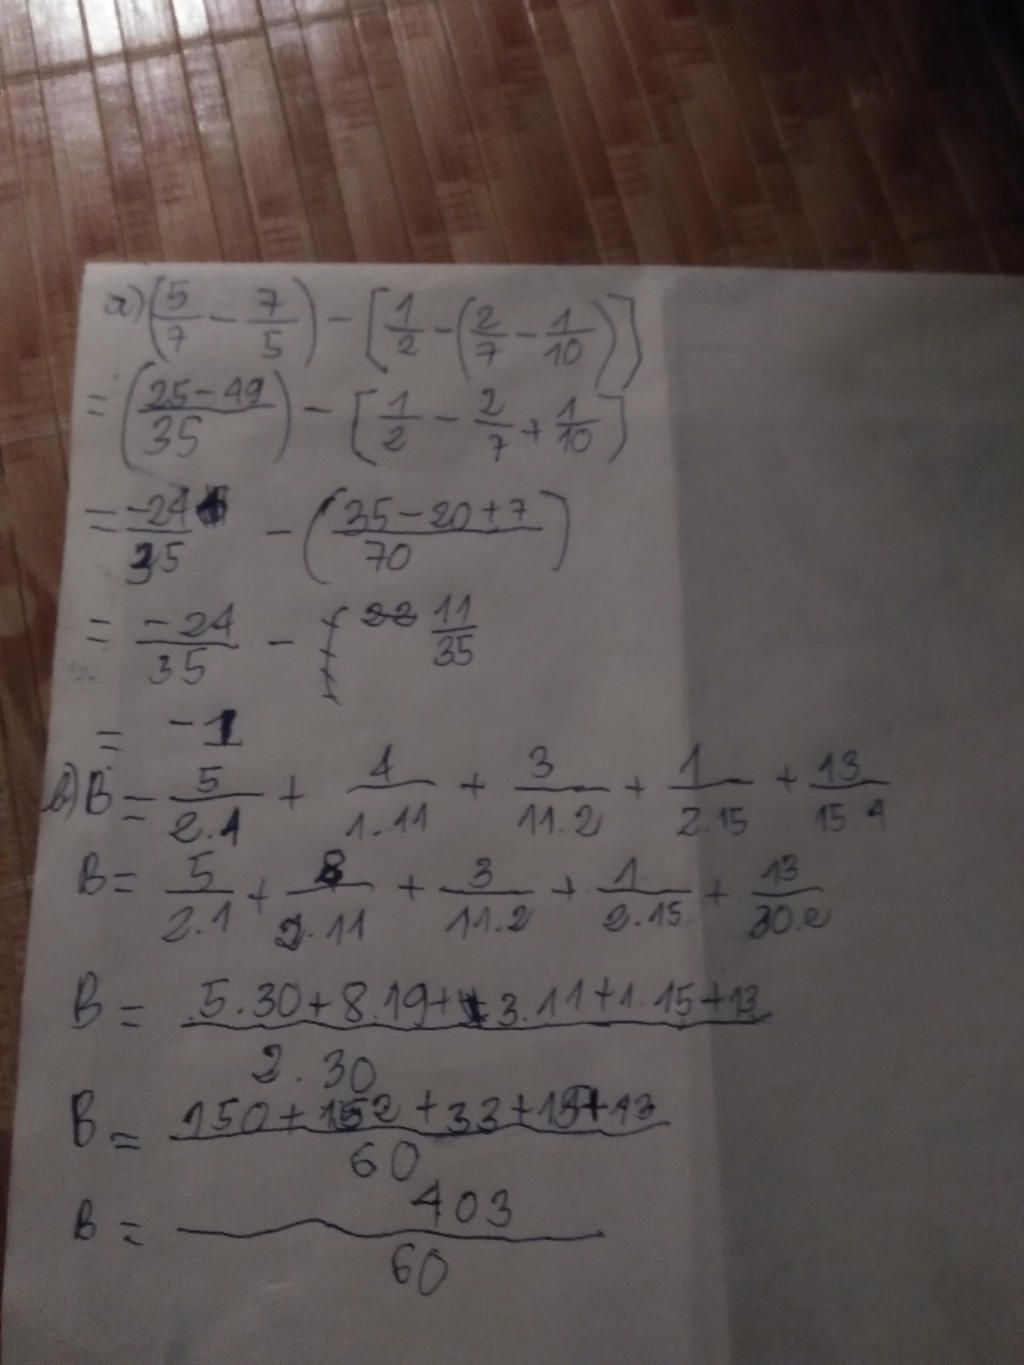 a) (5/7 - 7/5) - [1/2 - (2/7 - 1/10)]
= (25 - 49/35) - [1/2 - 2/7 + 1/10]
= -24/35 - (35 - 20 + 7/70)
= -24/35 - 11/35
= -1
b) B = 5/2.1 + 4/1.11 + 3/11.2 + 1/2.15 + 13/15.4
B = 5/2.1 + 8/2.11 + 3/11.2 + 1/2.15 + 13/30.2
B = 5.30 + 8.19 + 3.11 + 1.15 + 13/2.30
B = 150 + 152 + 33 + 15 + 13/60
B = 403/60